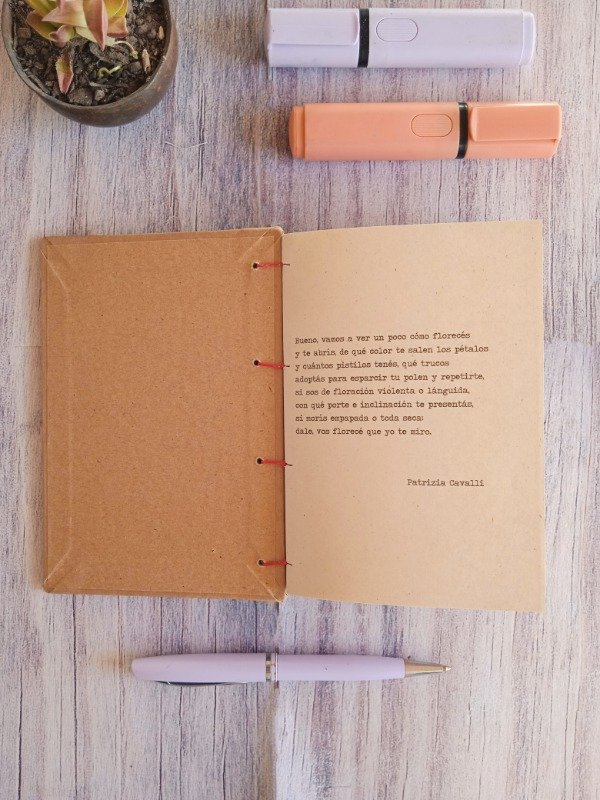 Bueno, vamos a ver un poco cómo florecés
y te abrís, de qué color te salen los pétalos
y cuántos pistilos tenés, qué trucos
adoptás para esparcir tu polen y repetirte,
si sos de floración violenta o lánguida,
con qué porte e inclinación te presentás,
si morís empapada o toda seca:
dale, vos florecé que yo te miro.
Patrizia Cavalli